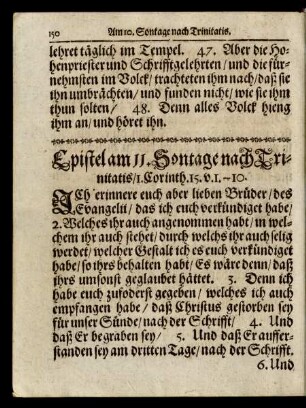 150 Am 10. Sontage nach Trinitatis.
lehret täglich im Tempel. 47. Aber die Ho-
henpriester und Schrifftgelehrten / und die für-
nehmsten im Volck / trachteten ihm nach / daß sie
ihn umbrächten / und funden nicht / wie sie ihm
thun solten / 48. Denn alles Volck hieng
ihm an / und höret ihn.
Epistel am 11. Sontage nach Tri-
nitatis / 1. Corinth. 15. v. 1. - 10.
ICh erinnere euch aber lieben Brüder / des
Evangelii / das ich euch verkündiget habe /
2. Welches ihr auch angenommen habt / in wel-
chem ihr auch stehet / durch welchs ihr auch selig
werdet / welcher Gestalt ich es euch verkündiget
habe / so ihrs behalten habt / Es wäre denn / daß
ihrs umsonst geglaubet hättet. 3. Denn ich
habe euch zuföderst gegeben / welches ich auch
empfangen habe / daß Christus gestorben sey
für unser Sünde / nach der Schrifft / 4. Und
daß Er begraben sey / 5. Und daß Er auffer-
standen sey am dritten Tage / nach der Schrifft.
6. Und